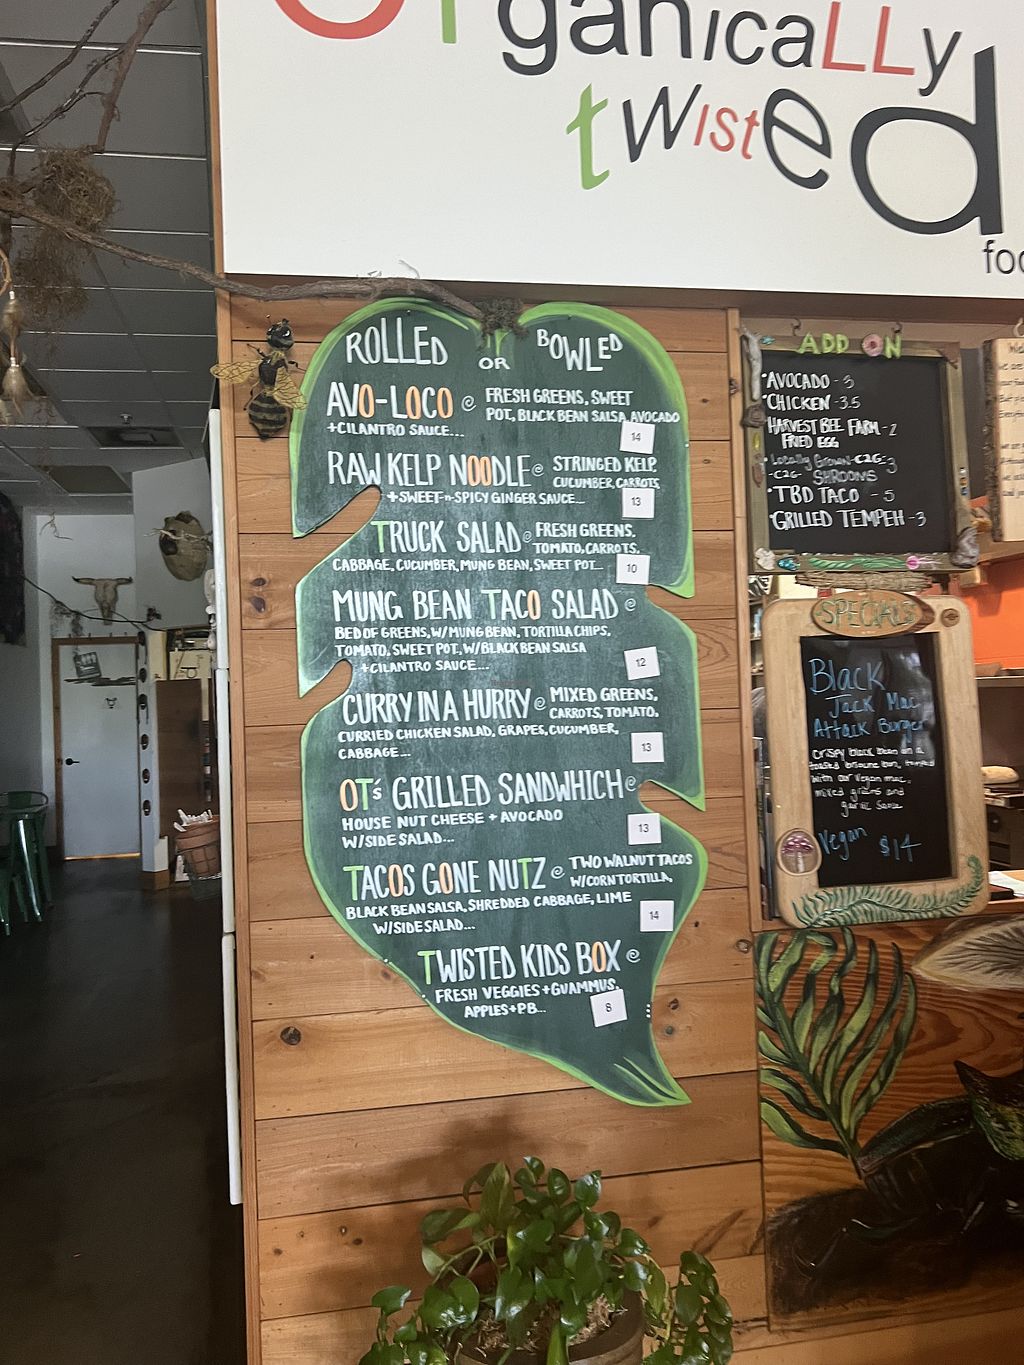 Organically
twisted
foo
ROLLED OR BOWLED
AVO-LOCO @ FRESH GREENS, SWEET
POT, BLACK BEAN SALSA, AVOCADO
+CILANTRO SAUCE...
14
RAW KELP NOODLE @ STRINGED KELP,
CUCUMBER, CARROTS,
+SWEET-N-SPICY GINGER SAUCE...
13
TRUCK SALAD @ FRESH GREENS,
TOMATO, CARROTS,
CABBAGE, CUCUMBER, MUNG BEAN, SWEET POT...
10
MUNG BEAN TACO SALAD @
BED OF GREENS, W/MUNG BEAN, TORTILLA CHIPS,
TOMATO, SWEET POT, W/BLACK BEAN SALSA
+CILANTRO SAUCE...
12
CURRY IN A HURRY @ MIXED GREENS,
CARROTS, TOMATO,
CURRIED CHICKEN SALAD, GRAPES, CUCUMBER,
CABBAGE...
13
OT's GRILLED SANDWHICH @
HOUSE NUT CHEESE + AVOCADO
W/SIDE SALAD...
13
TACOS GONE NUTZ @ TWO WALNUT TACOS
W/CORN TORTILLA,
BLACK BEAN SALSA, SHREDDED CABBAGE, LIME
W/SIDE SALAD...
14
TWISTED KIDS BOX @
FRESH VEGGIES + GUAMMUS,
APPLES + PB...
8
ADD ON
•AVOCADO - 3
•CHICKEN - 3.5
•HARVEST BEE FARM - 2
FRIED EGG
•Locally Grown C2G - 3
-C2G- SHROOMS
•TBD TACO - 5
•GRILLED TEMPEH - 3
SPECIALS
Black
Jack Mac
Attack Burger
Crispy black bean on a
toasted brioche bun, topped
with our vegan mac,
mixed greens and
garlic sauce
Vegan $14